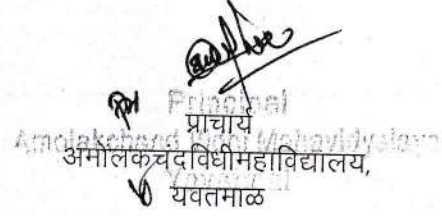 Principal
प्राचार्य
Amolakchand Vidhi Mahavidyalaya
अमोलकचदविधीमहाविद्यालय,
Yavatmal
यवतमाळ